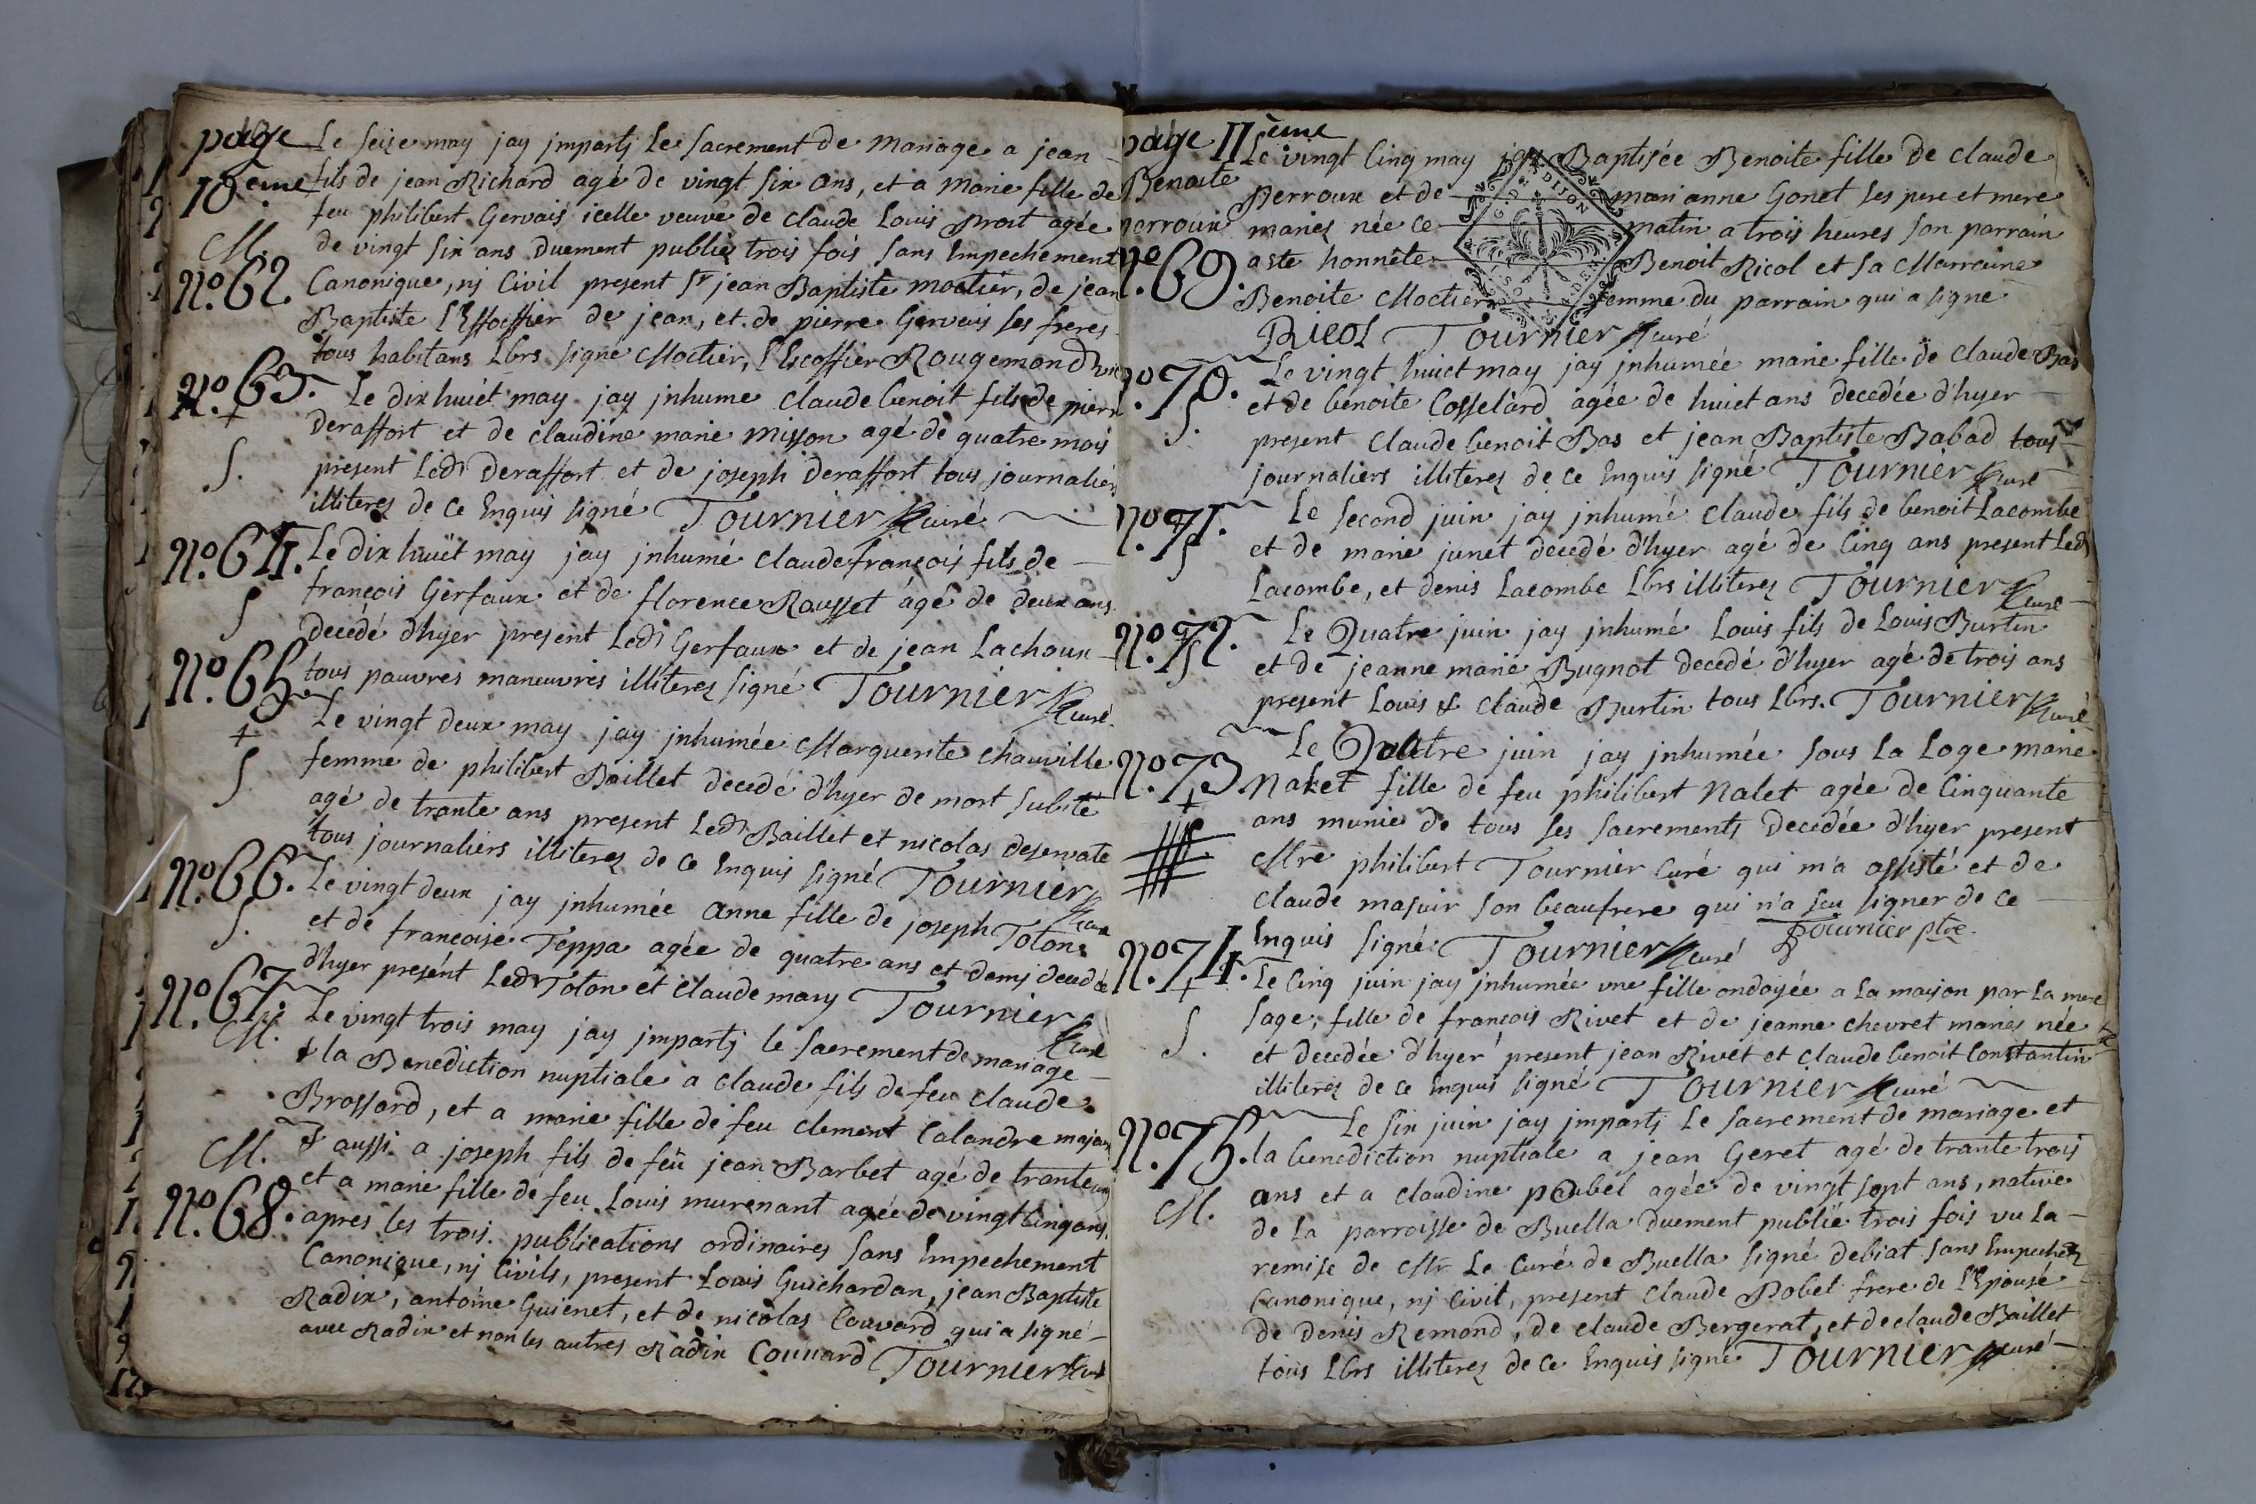 page
10 eme
Le seize may jay jmpartj Le sacrement de Mariage a jean
fils de jean Richard agé de vingt six ans, et a Marie fille de
feu philibert Gervais icelle veuve de claude Louis agée
de vingt six ans Duement publiez trois fois sans Empechement
M.
No. 62.
Canonique, nj Civil present Sr jean Baptiste moctier, de jean
Baptiste de jean, et de pierre Gervais ses freres
tous habitans Lbrs signé Moctier, l'Escoffier Rougemond
No. 63.
+
S.
Le dix huict may jay jnhume Claude benoit fils de pierre
Deraffort et de claudine marie Misson agé de quatre mois
present Ledt Deraffort et de joseph Deraffort tous journaliers
illiterez de ce Enquis signé Tournier Curé
No. 64.
S
Le dix huict may jay jnhumé Claude françois fils de
françois Gerfaux et de florence Rousset agé de deux ans
decedé d'hyer present Ledt Gerfaux et de jean Lachoux
tous pauvres manœuvres illiterez signé Tournier Curé
No. 65
+
S
Le vingt deux may jay jnhumée Marguerite chauville
femme de philibert Baillet decedé d'hyer de mort subite
agé de trante ans present Ledt Baillet et nicolas deservate
tous journaliers illiterez de ce Enquis signé Tournier Curé
No. 66.
S.
Le vingt deux jay jnhumée anne fille de joseph Toton
et de francoise Teppa agée de quatre ans et demj decedée
d'hyer present Ledt Toton et Claude mary Tournier Curé
No. 67.
M.
Le vingt trois may jay jmpartj le sacrement de mariage
& la Benediction nuptiale a claude fils de feu claude
Brossard, et a marie fille de feu clement Calandre majeurs
M.
& aussi a joseph fils de feu jean Barbet agé de trante
et a marie fille de feu Louis murenant agée de vingt Cinq ans
No. 68.
apres les trois publications ordinaires sans Empechement
Canonique, nj Civils, present Louis Guichardan, jean Baptiste
Radix, antoine Guienet, et de nicolas Couvard qui a signé
avec Radix et non les autres Radix Couuard Tournier Curé
page 11 eme
Benoite
perroux
No 69.
Le vingt Cinq may jay Baptisée Benoite fille de claude
Perroux et de marianne Gonet ses pere et mere
mariez née ce matin a trois heures son parrain
a ete honnête Benoit Ricol et sa Marraine
Benoite Moctier femme du parrain qui a signé
G. D. DIJON
Ricol Tournier Curé
No. 70.
S.
Le vingt huict may jay jnhumée marie fille de Claude Bas
et de benoite Cosselard agée de huict ans decedée d'hyer
present Claude benoit Bas et jean Baptiste Babad tous
journaliers illiterez de ce Enquis signé Tournier Curé
No. 71.
S
Le second juin jay jnhumé claude fils de benoit Lacombe
et de marie junet decedé d'hyer agé de Cinq ans present Ledt
Lacombe, et denis Lacombe Lbrs illiterez Tournier Curé
No. 72.
S
Le Quatre juin jay jnhumé Louis fils de Louis Burtin
et de jeanne marie Bugnot decedé d'hyer agé de trois ans
present Louis & claude Burtin tous Lbrs. Tournier Curé
No. 73
+
Le Quatre juin jay jnhumée sous La Loge marie
Nalet fille de feu philibert Nalet agée de Cinquante
ans munie de tous ses sacrements Decedée d'hyer present
Mre philibert Tournier Curé qui m'a assisté et de
Claude majuir son beaufrere qui n'a sceu signer de ce
Enquis signé Tournier Curé Tournier ptre
No. 74.
+
S.
Le Cinq juin jay jnhumée vne fille ondoyée a La maison par La mere
sage, fille de francois Rivet et de jeanne chevret mariez née
et decedée d'hyer present jean Rivet et claude benoit Constantin
illiterez de ce Enquis signé Tournier Curé
No. 75.
M.
Le six juin jay jmpartj Le sacrement de mariage et
la benediction nuptiale a jean Geret agé de trante trois
ans et a claudine pobel agée de vingt sept ans, native
de La parroisse de Buella Duement publié trois fois vu La
remise de Mr Le Curé de Buella signé debiat sans Empechet
Canonique, nj Civil, present Claude Pobel frere de l'Epouse
de Denis Remond, de claude Bergerat, et de claude Baillet
tous Lbrs illiterez de ce Enquis signé Tournier Curé